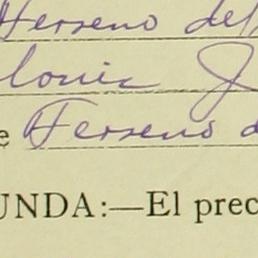 Terreno del
lonia J
e Terreno d
UNDA:—El prec